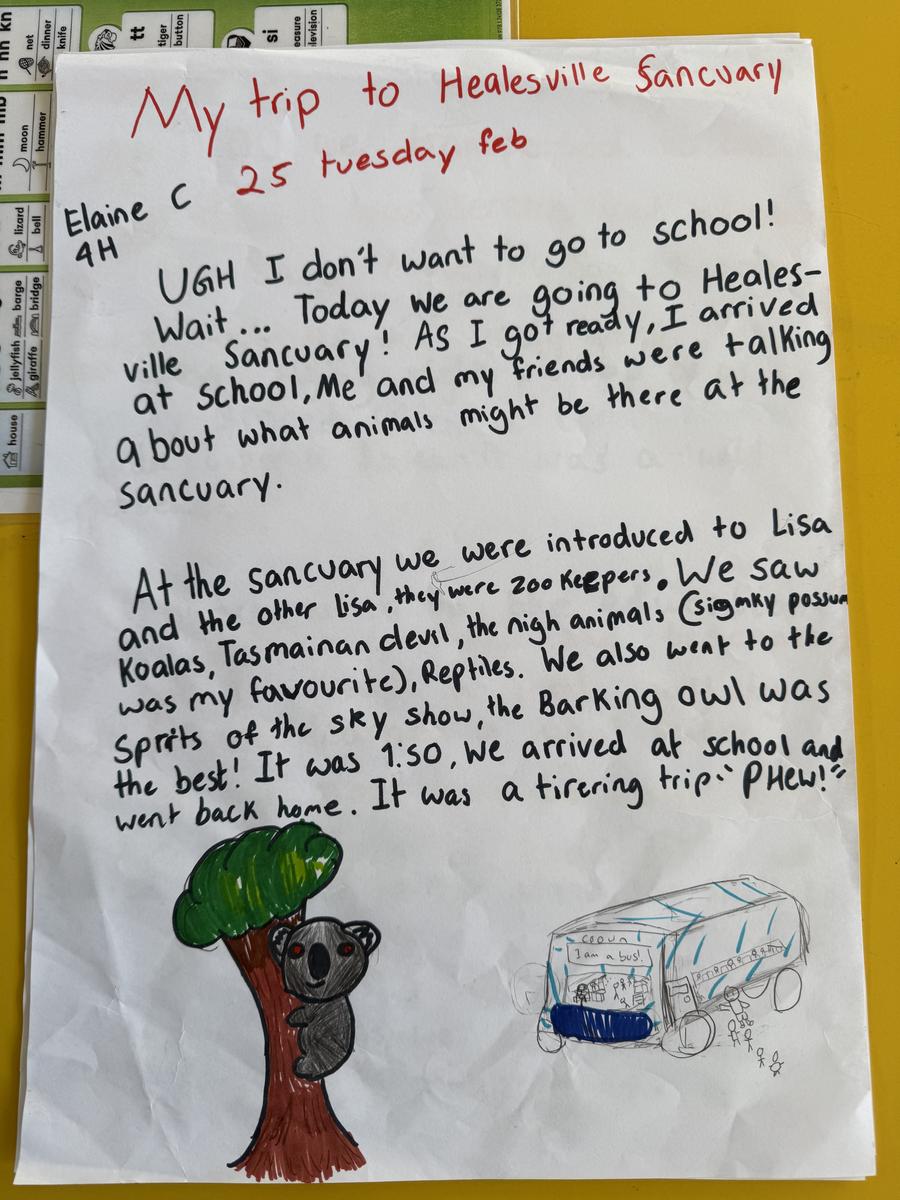 nn kn
net
dinner
knife
tt
tiger
button
si
easure
elevision
moon
hammer
lizard
bell
jellyfish
giraffe
barge
bridge
house
My trip to Healesville Sancuary
25 tuesday feb
Elaine C
4H
UGH I don't want to go to school!
Wait... Today we are going to Heales-
ville Sancuary! As I got ready, I arrived
at school, Me and my friends were talking
about what animals might be there at the
sancuary.
At the sancuary we were introduced to Lisa
and the other Lisa, they were zoo Keepers. We saw
Koalas, Tasmainan devil, the nigh animals (sigmky possum
was my favourite), Reptiles. We also went to the
Sprits of the sky show, the Barking owl was
the best! It was 1:50, We arrived at school and
went back home. It was a tirering trip "PHew!"
I am a bus!